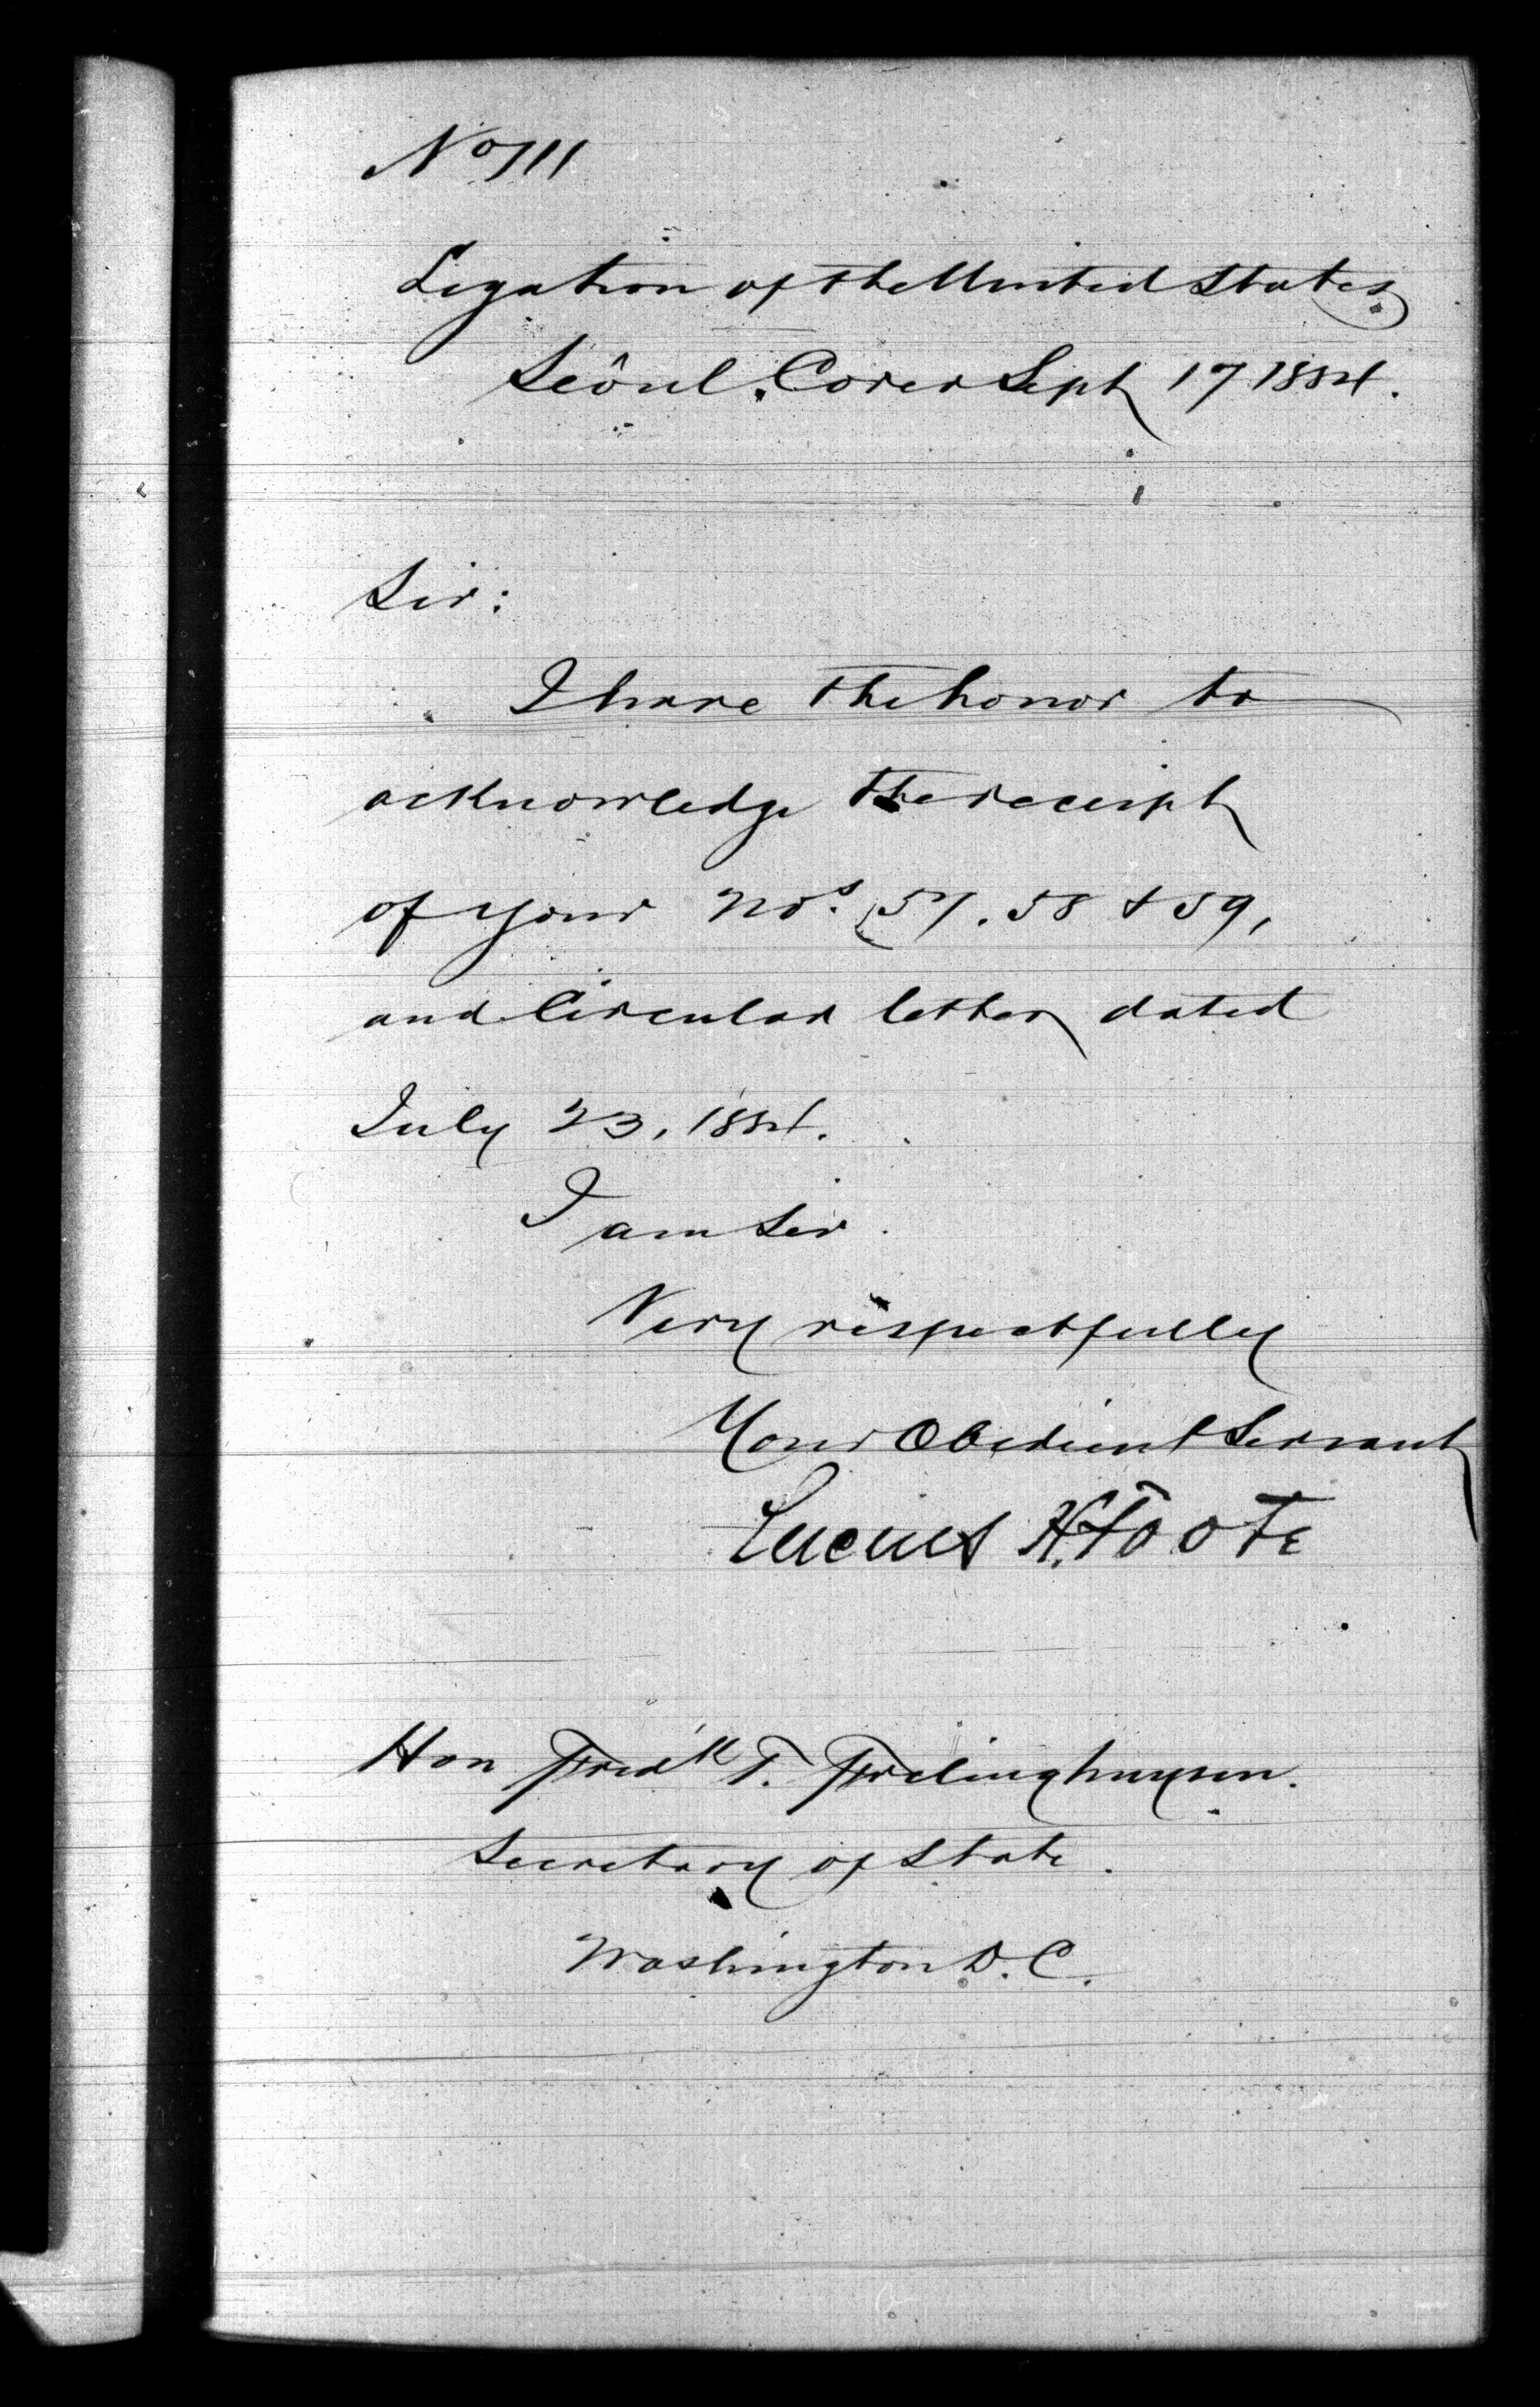 No 111
Legation of the United States
Seôul, Corea Sept 17 1884.
Sir:
I have the honor to
acknowledge the receipt
of your Nos. 57. 58 & 59,
and Circular letter dated
July 23, 1884.
I am Sir.
Very respectfully
Your Obedient Servant
Lucius H. Foote
Hon Fred'k T. Frelinghuysen.
Secretary of State.
Washington D.C.